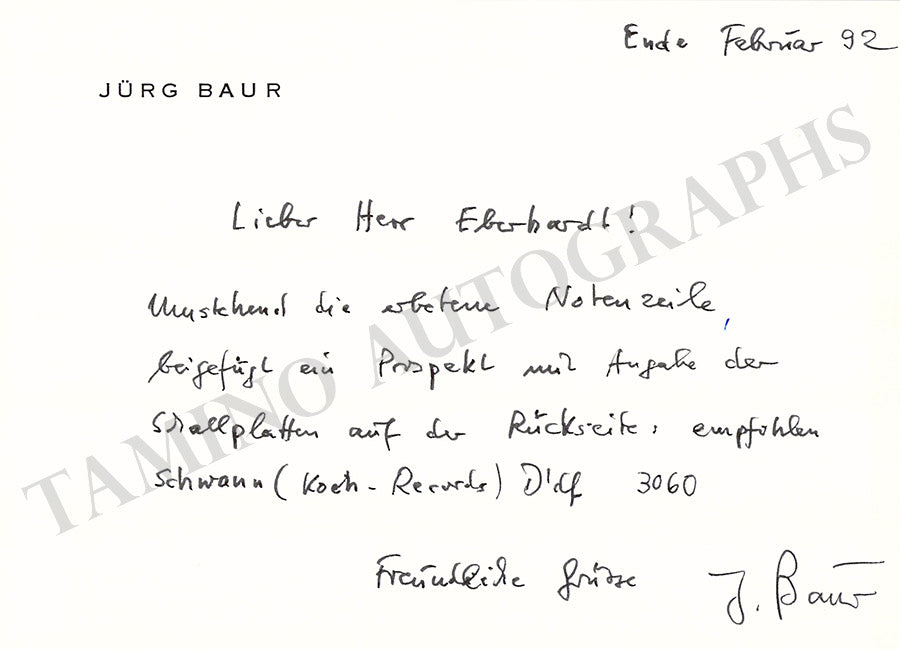 Ende Februar 92
JÜRG BAUR
Lieber Herr Eberhardt!
Umstehend die erbetene Notenzeile,
beigefügt ein Prospekt mit Angabe der
Schallplatten auf der Rückseite: empfohlen
Schwann (Koch-Records) D'df 3060
Freundliche Grüsse J. Baur
TAMINO AUTOGRAPHS